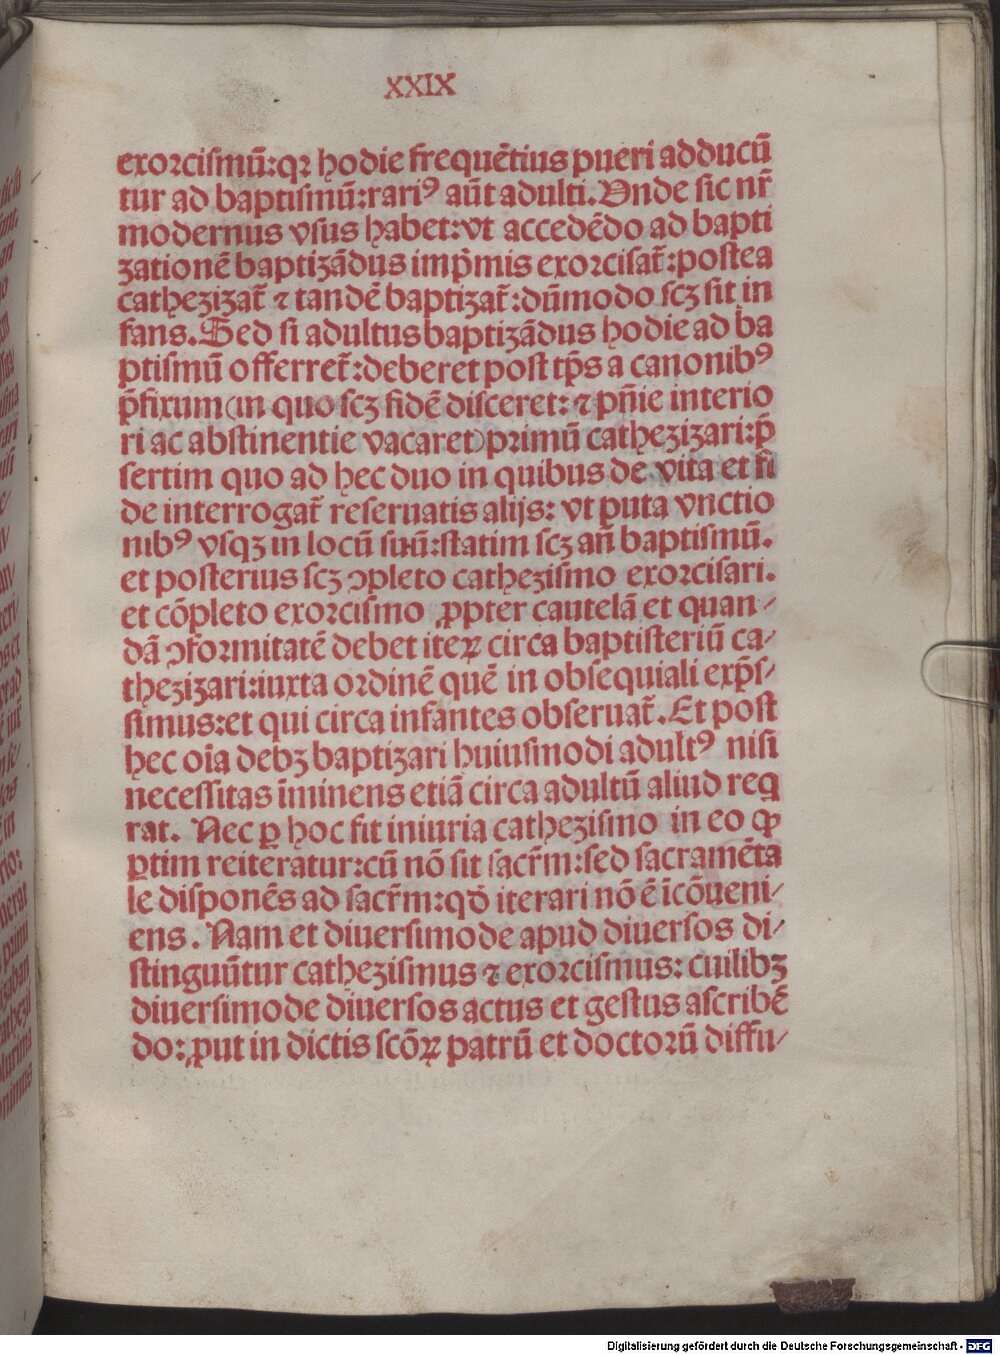 XXIX
exorcismū:qꝛ hodie frequētius pueri adducū
tur ad baptismū:rariꝰ aūt adulti. Vnde sic nr̄
modernus vsus habet:vt accedēdo ad bapti
zationē baptizādus imp̄mis exorcisat̄:postea
cathezizat̄ ⁊ tandē baptizat̄:dūmodo scꝫ sit in
fans. Sed si adultus baptizādus hodie ad ba
ptismū offerret̄:deberet post tp̄s a canonibꝰ
p̄fixum (in quo scꝫ fidē disceret: ⁊ pn̄ie interio
ri ac abstinentie vacaret) primū cathezizari:p̄
sertim quo ad hec duo in quibus de vita et fi
de interrogat̄ reseruatis alijs: vt puta vnctio
nibꝰ vsqꝫ in locū suū:statim scꝫ an̄ baptismū.
et posterius scꝫ ꝯpleto cathezismo exorcisari.
et cōpleto exorcismo ꝓpter cautelā et quan⸗
dā ꝯformitatē debet iteꝝ circa baptisteriū ca⸗
thezizari:iuxta ordinē quē in obsequiali exp̄s⸗
simus:et qui circa infantes obseruat̄. Et post
hec oīa debꝫ baptizari huiusmodi adultꝰ nisi
necessitas īminens etiā circa adultū aliud req̄
rat. Nec ꝑ hoc fit iniuria cathezismo in eo ꝙ
ꝑtim reiteratur:cū nō sit sacr̄m:sed sacramēta
le disponēs ad sacr̄m:qd̄ iterari nō ē īcōueni⸗
ens. Nam et diuersimode apud diuersos di⸗
stinguūtur cathezismus ⁊ exorcismus: cuilibꝫ
diuersimode diuersos actus et gestus ascribē
do: ꝓut in dictis scōꝝ patrū et doctorū diffu⸗
Digitalisierung gefördert durch die Deutsche Forschungsgemeinschaft - DFG